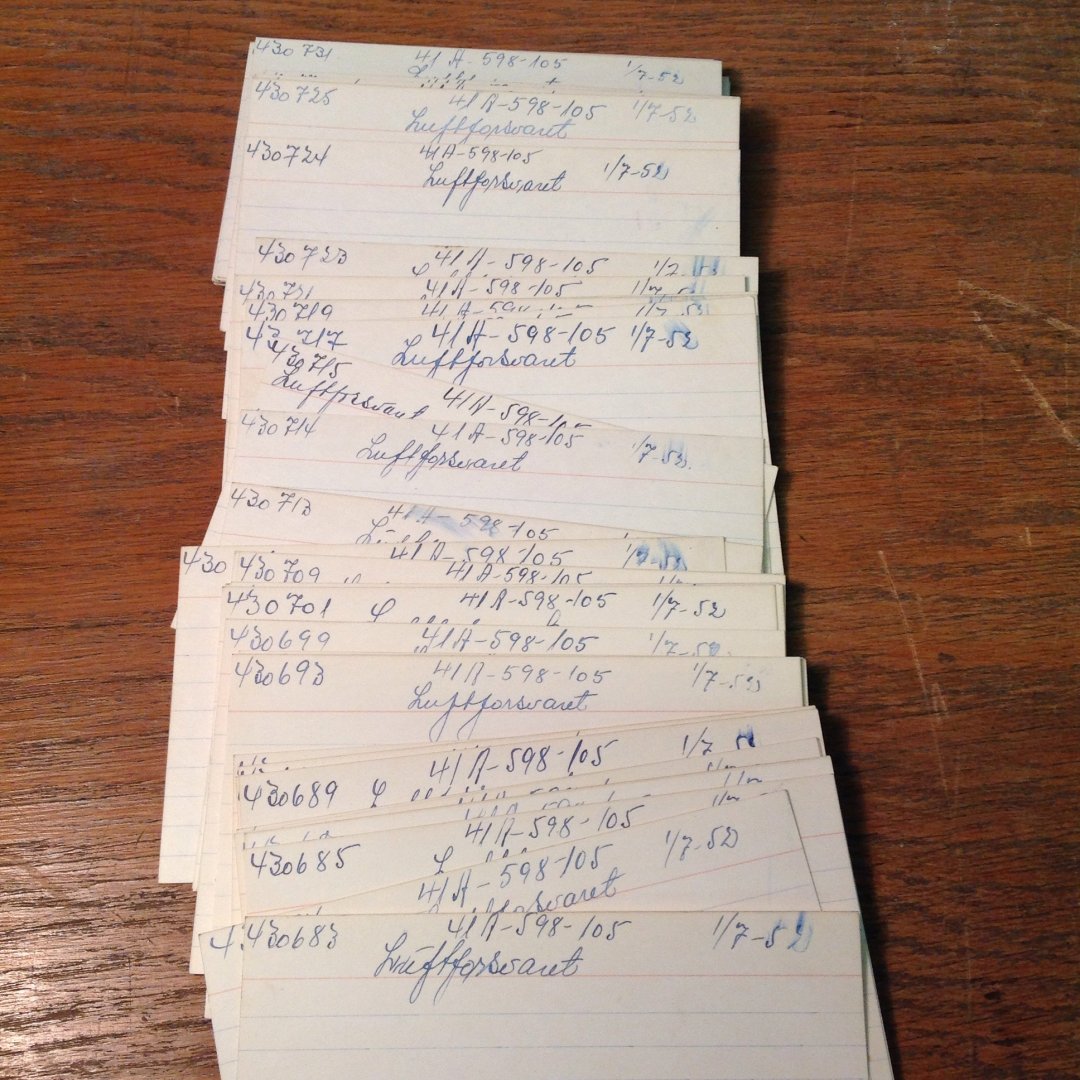 430731 41 A-598-105 1/7-52
430725 41 A-598-105 1/7-52
Luftforsvaret
430724 41A-598-105 1/7-52
Luftforsvaret
430723 41 A-598-105 1/7-
41 A-598-105
430719 41 A-
430717 41 A-598-105 1/7-52
Luftforsvaret
430715
Luftforsvaret 41 A-598-10
430714 41A-598-105 1/7-52
Luftforsvaret
430713 41A-598-105
430 41 A-598-105 1/7-52
430709 41A-598-105
430701 41A-598-105 1/7-52
430699 41 A-598-105 1/7-52
430693 41A-598-105 1/7-52
Luftforsvaret
41 A-598-105 1/7
430689
41A-598-105
430685 41A-598-105 1/7-52
41A-
430683 41A-598-105 1/7-52
Luftforsvaret